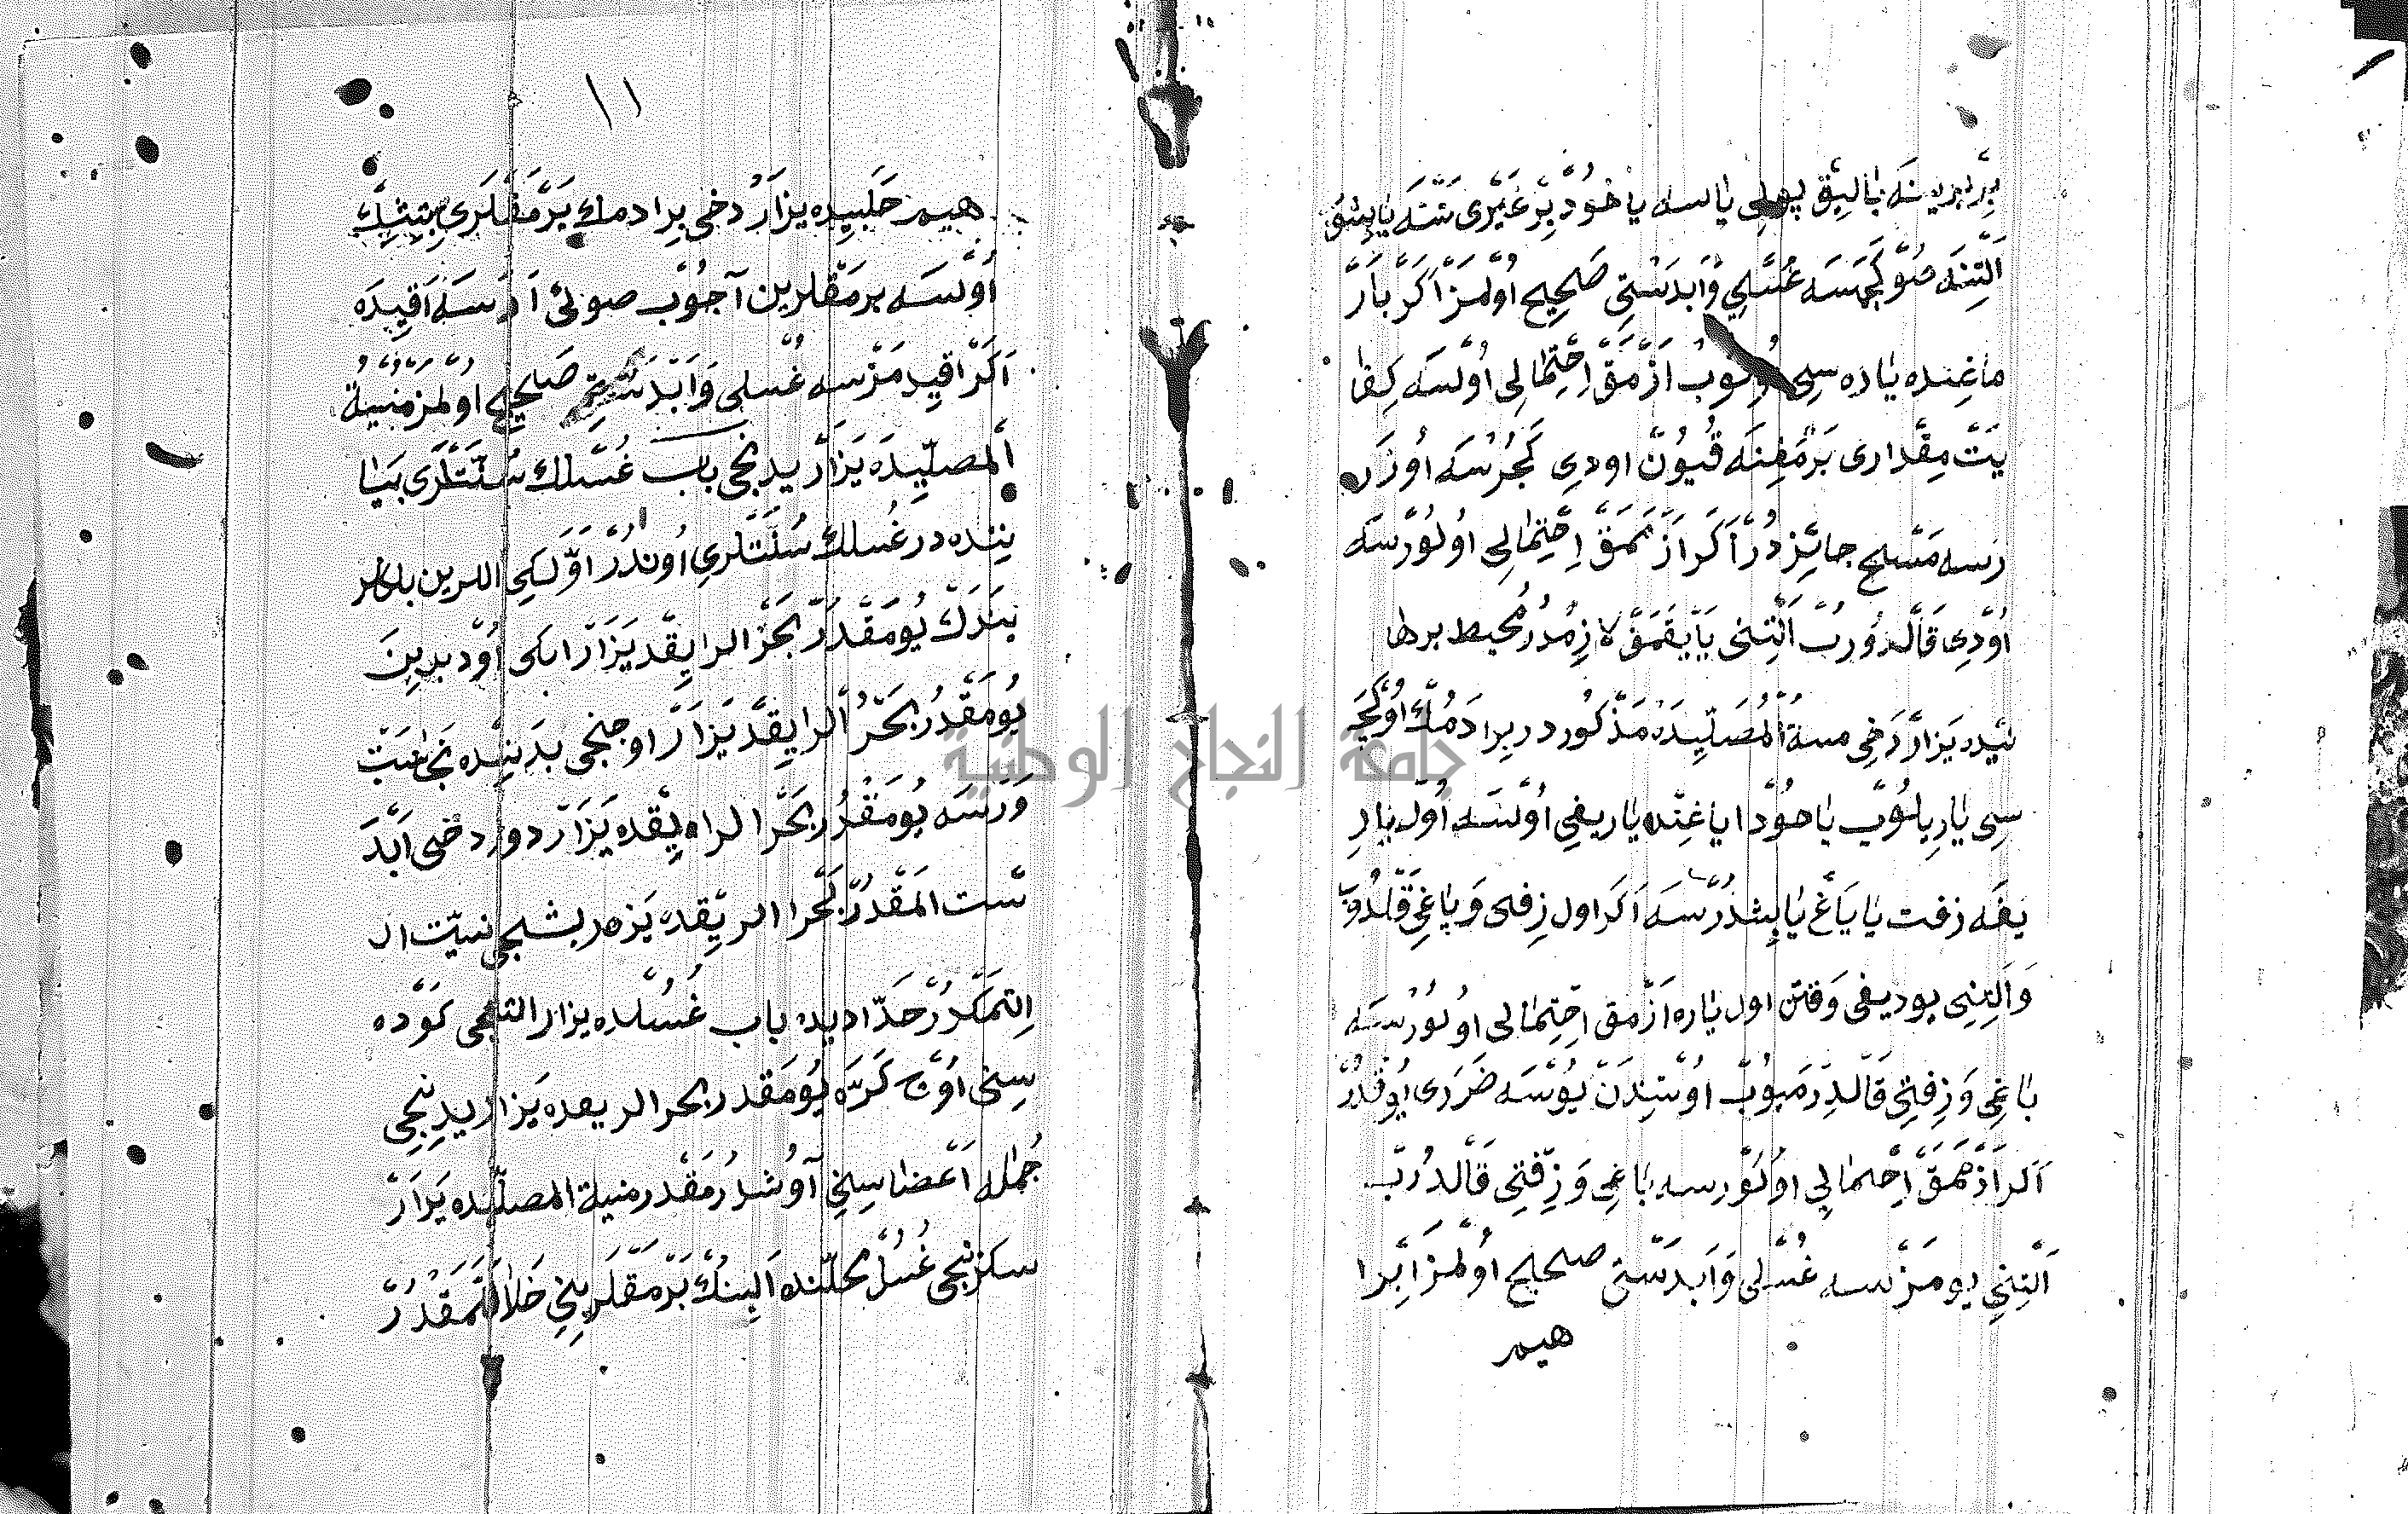 بر برينه بالق پولى ياسه ياخود بر غيرى سنه يابشق
التنه صو كچمسه غسلى وابدستى صحيح اولمز اكر بار
ماغنده ياره سى اولوب ازمق احتمالى اولسه كفا
يت مقدارى برمغنه قيون اودى كجرسه اوزر
رسه مسح جائز در اكر ازممق احتمالى اولورسه
اودى قالدورب التنى يايقمق لازمدر محيط برها
نيده يزار دخى منية المصليده مذكور در برادمك اوكجه
سى ياريلوب ياخود اياغنده ياريغى اولسه اول يار
يغه زفت يا ياغ يابشدرسه اكر اول زفتى وياغى قلدوب
والتنى يوديغى وقتن اول ياره ازمق احتمالى اولورسه
ياغى وزفتى قالدرميوب اوستندن يوسه ضررى يوقدر
اكر ازممق احتمالى اولورسه ياغى وزفتى قالدرب
التنى يومزسه غسلى وابدستى صحيح اولمز ابرا
هيم
١١
هيم حلبيده يزار دخى برادمك برمقلرى بتشك
اولسه برمقلرين آجوب صوئى ارسه اقيده
اكر اقيدمزسه غسلى وابدستى صحيح اولمز منية
المصليده يزار يدنجى باب غسلك سنتلرى بيا
ننده در غسلك سنتلرى اوندر اولكى اللرين بلكلر
يندك يومقدر بحر الرايقد يزار ايكى اود يرين
يومقدر بحر الرايقد يزار اوجنجى بدننده نجاست
ورسه يومقدر بحر الرايقده يزار دورد خى ابد
ست المقدر بحر الرايقده يزر بشنجى نيت ا
اتمكدر حداديده باب غسلده يزار التنجى كوده
سنى اوج كره يومقدر بحر الريقده يزار يدنجى
جمله اعضاسنى آوشدرمقدر منية المصليده يزار
سكزنجى غسل محلنده البنك برمقلرينى خلاللمقدر
جامعة النجاح الوطنية